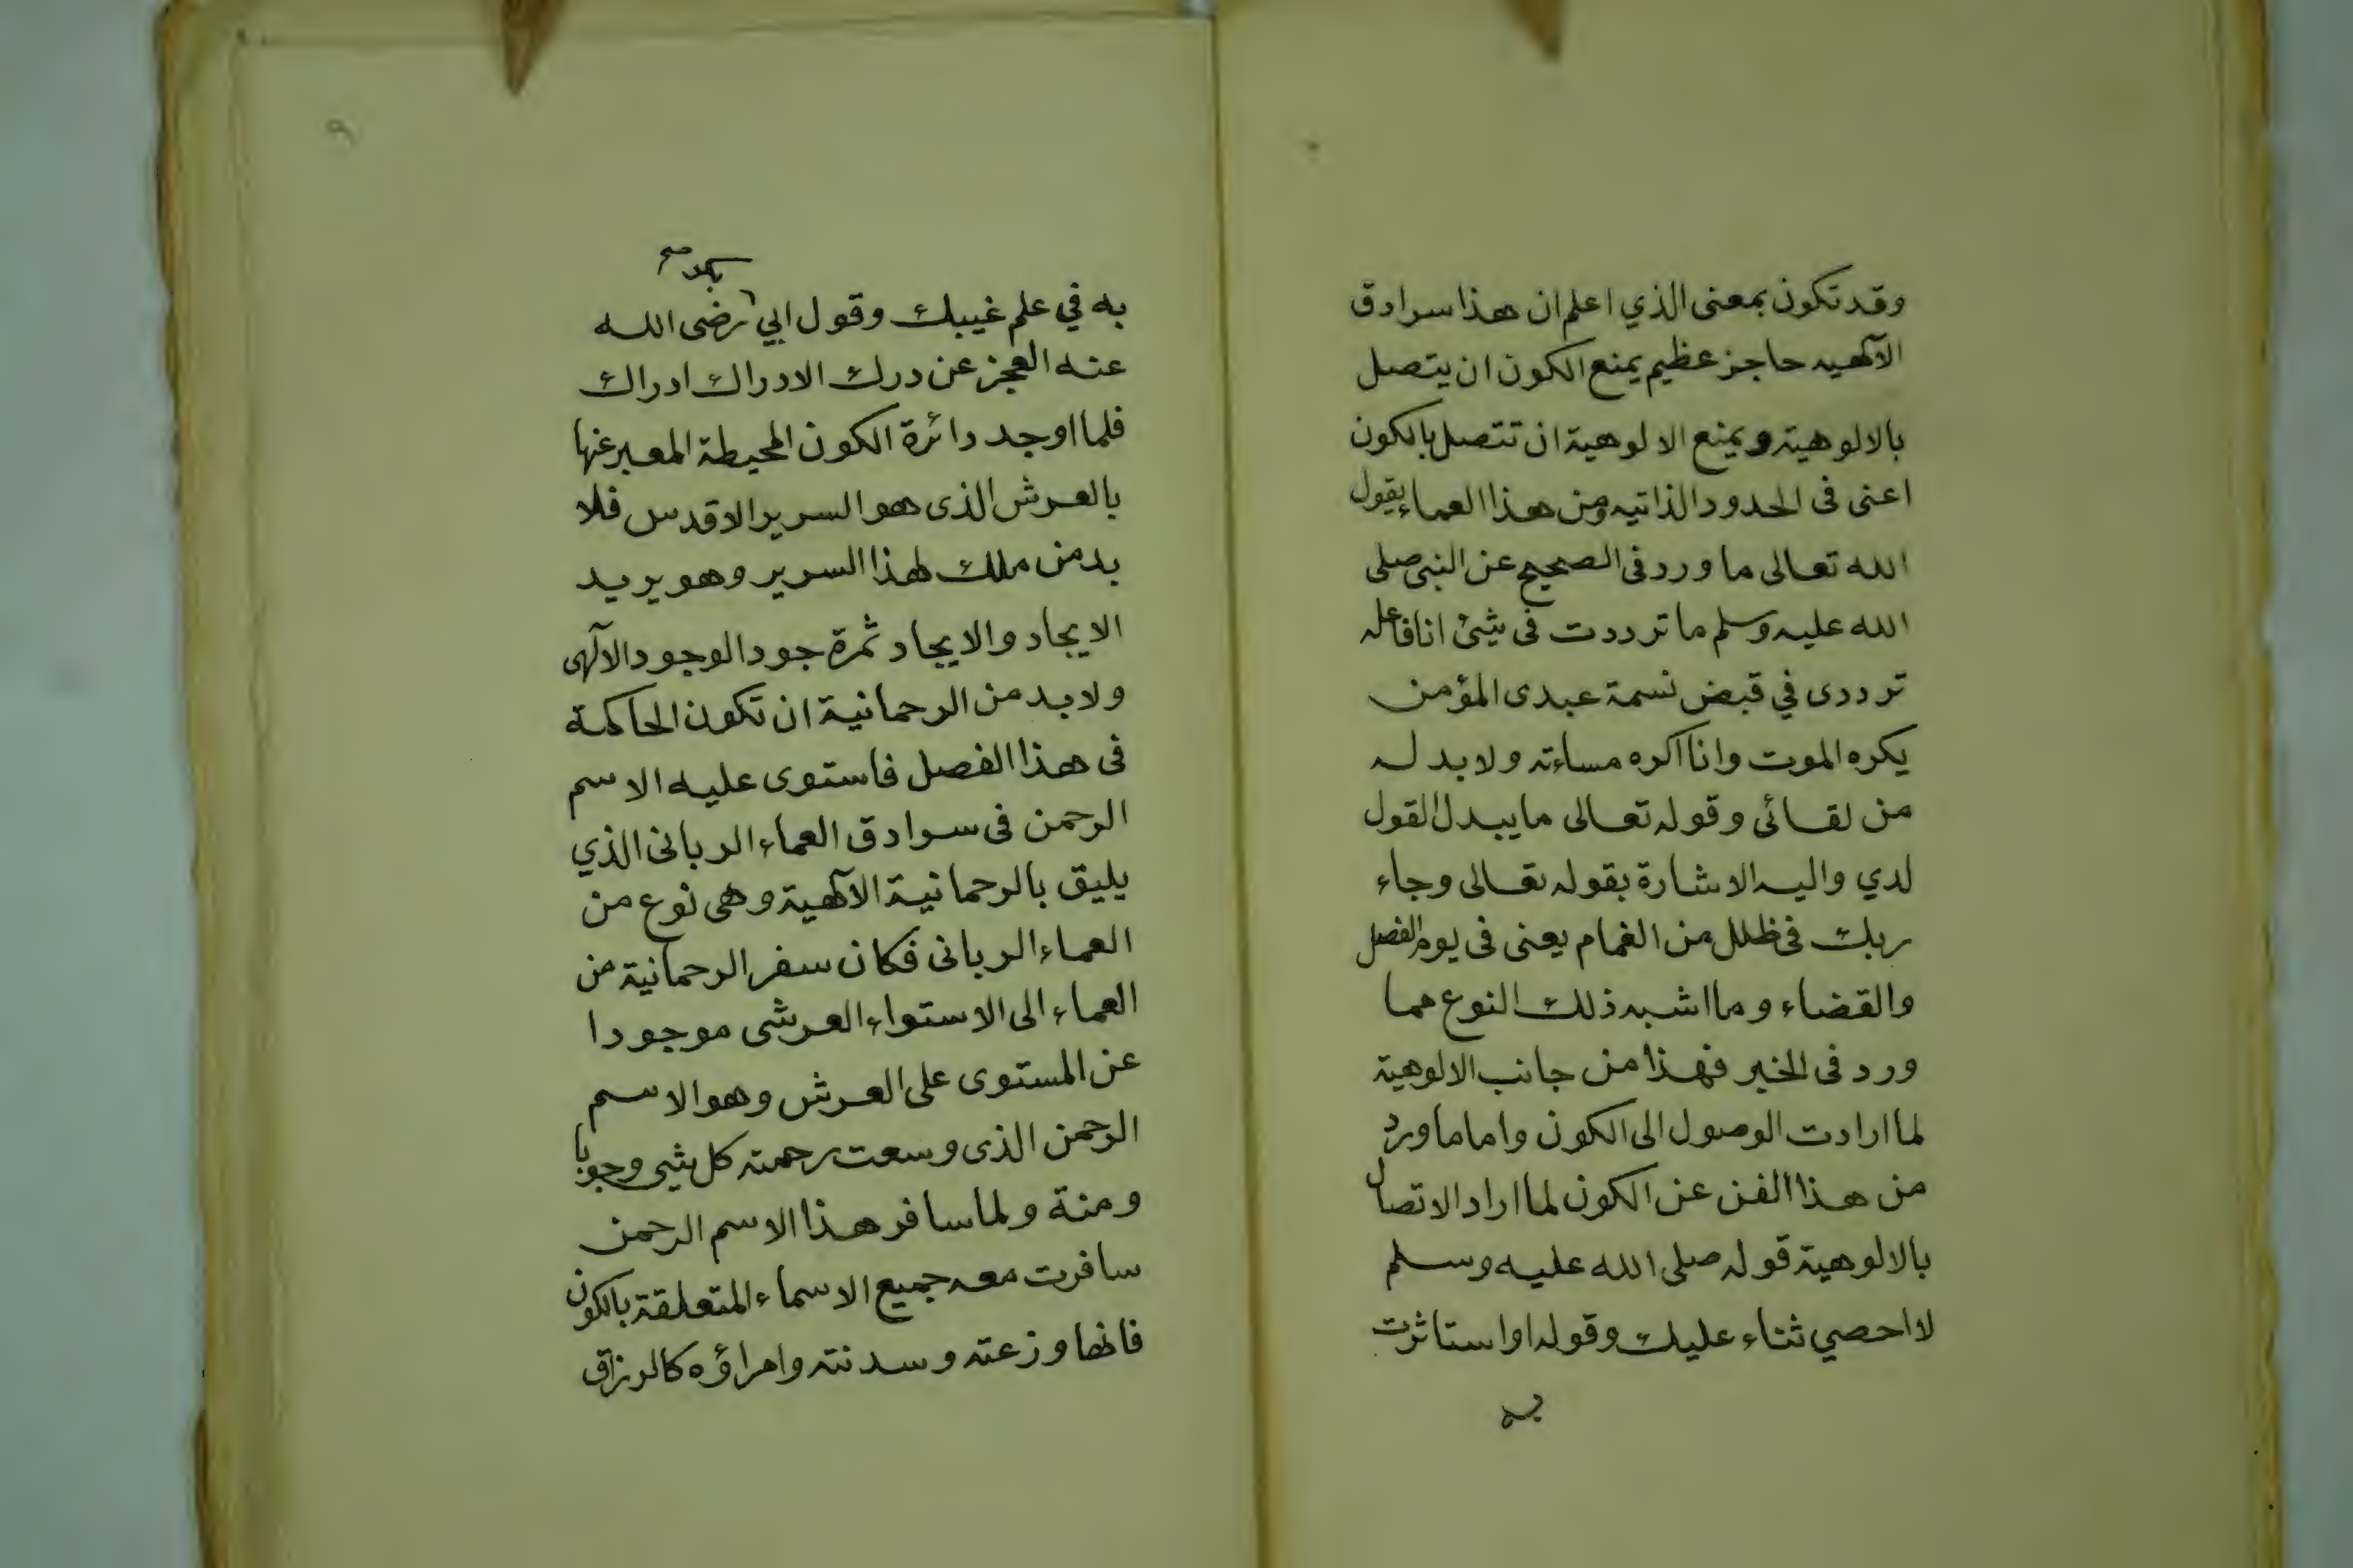 وقد تكون بمعنى الذي اعلم ان هذا سرادق
الآلهيه حاجز عظيم يمنع الكون ان يتصل
بالالوهية ويمنع الالوهية ان تتصل بالكون
اعنى فى الحدود الذاتيه ومن هذا العماء يقول
الله تعالى ما ورد فى الصحيح عن النبى صلى
الله عليه وسلم ما ترددت فى شئ انا فاعله
ترددى في قبض نسمة عبدى المؤمن
يكره الموت وانا اكره مساءته ولا بد له
من لقائى وقوله تعالى ما يبدل القول
لدي واليه الاشارة بقوله تعالى وجاء
ربك فى ظلل من الغمام يعنى فى يوم الفصل
والقضاء وما اشبه ذلك النوع مما
ورد فى الخبر فهذا من جانب الالوهية
لما ارادت الوصول الى الكون واما ما ورد
من هذا الفن عن الكون لما اراد الاتصال
بالالوهية قوله صلى الله عليه وسلم
لا احصي ثناء عليك وقوله او استاثرت
به
٩
بكر صح
به في علم غيبك وقول ابي رضى الله
عنه العجز عن درك الادراك ادراك
فلما اوجد دائرة الكون المحيطة المعبر عنها
بالعرش الذى هو السرير الاقدس فلا
بد من ملك لهذا السرير وهو يريد
الايجاد والايجاد ثمرة جود الوجود الآلهى
ولا بد من الرحمانية ان تكون الحاكمة
فى هذا الفصل فاستوى عليه الاسم
الرحمن فى سرادق العماء الربانى الذي
يليق بالرحمانية الآلهية وهى نوع من
العماء الربانى فكان سفر الرحمانية من
العماء الى الاستواء العرشى موجودا
عن المستوى على العرش وهو الاسم
الرحمن الذى وسعت رحمته كل شى وجوبا
ومنة ولما سافر هذا الاسم الرحمن
سافرت معه جميع الاسماء المتعلقة بالكون
فانها وزعته وسدنته وامراؤه كالرزاق